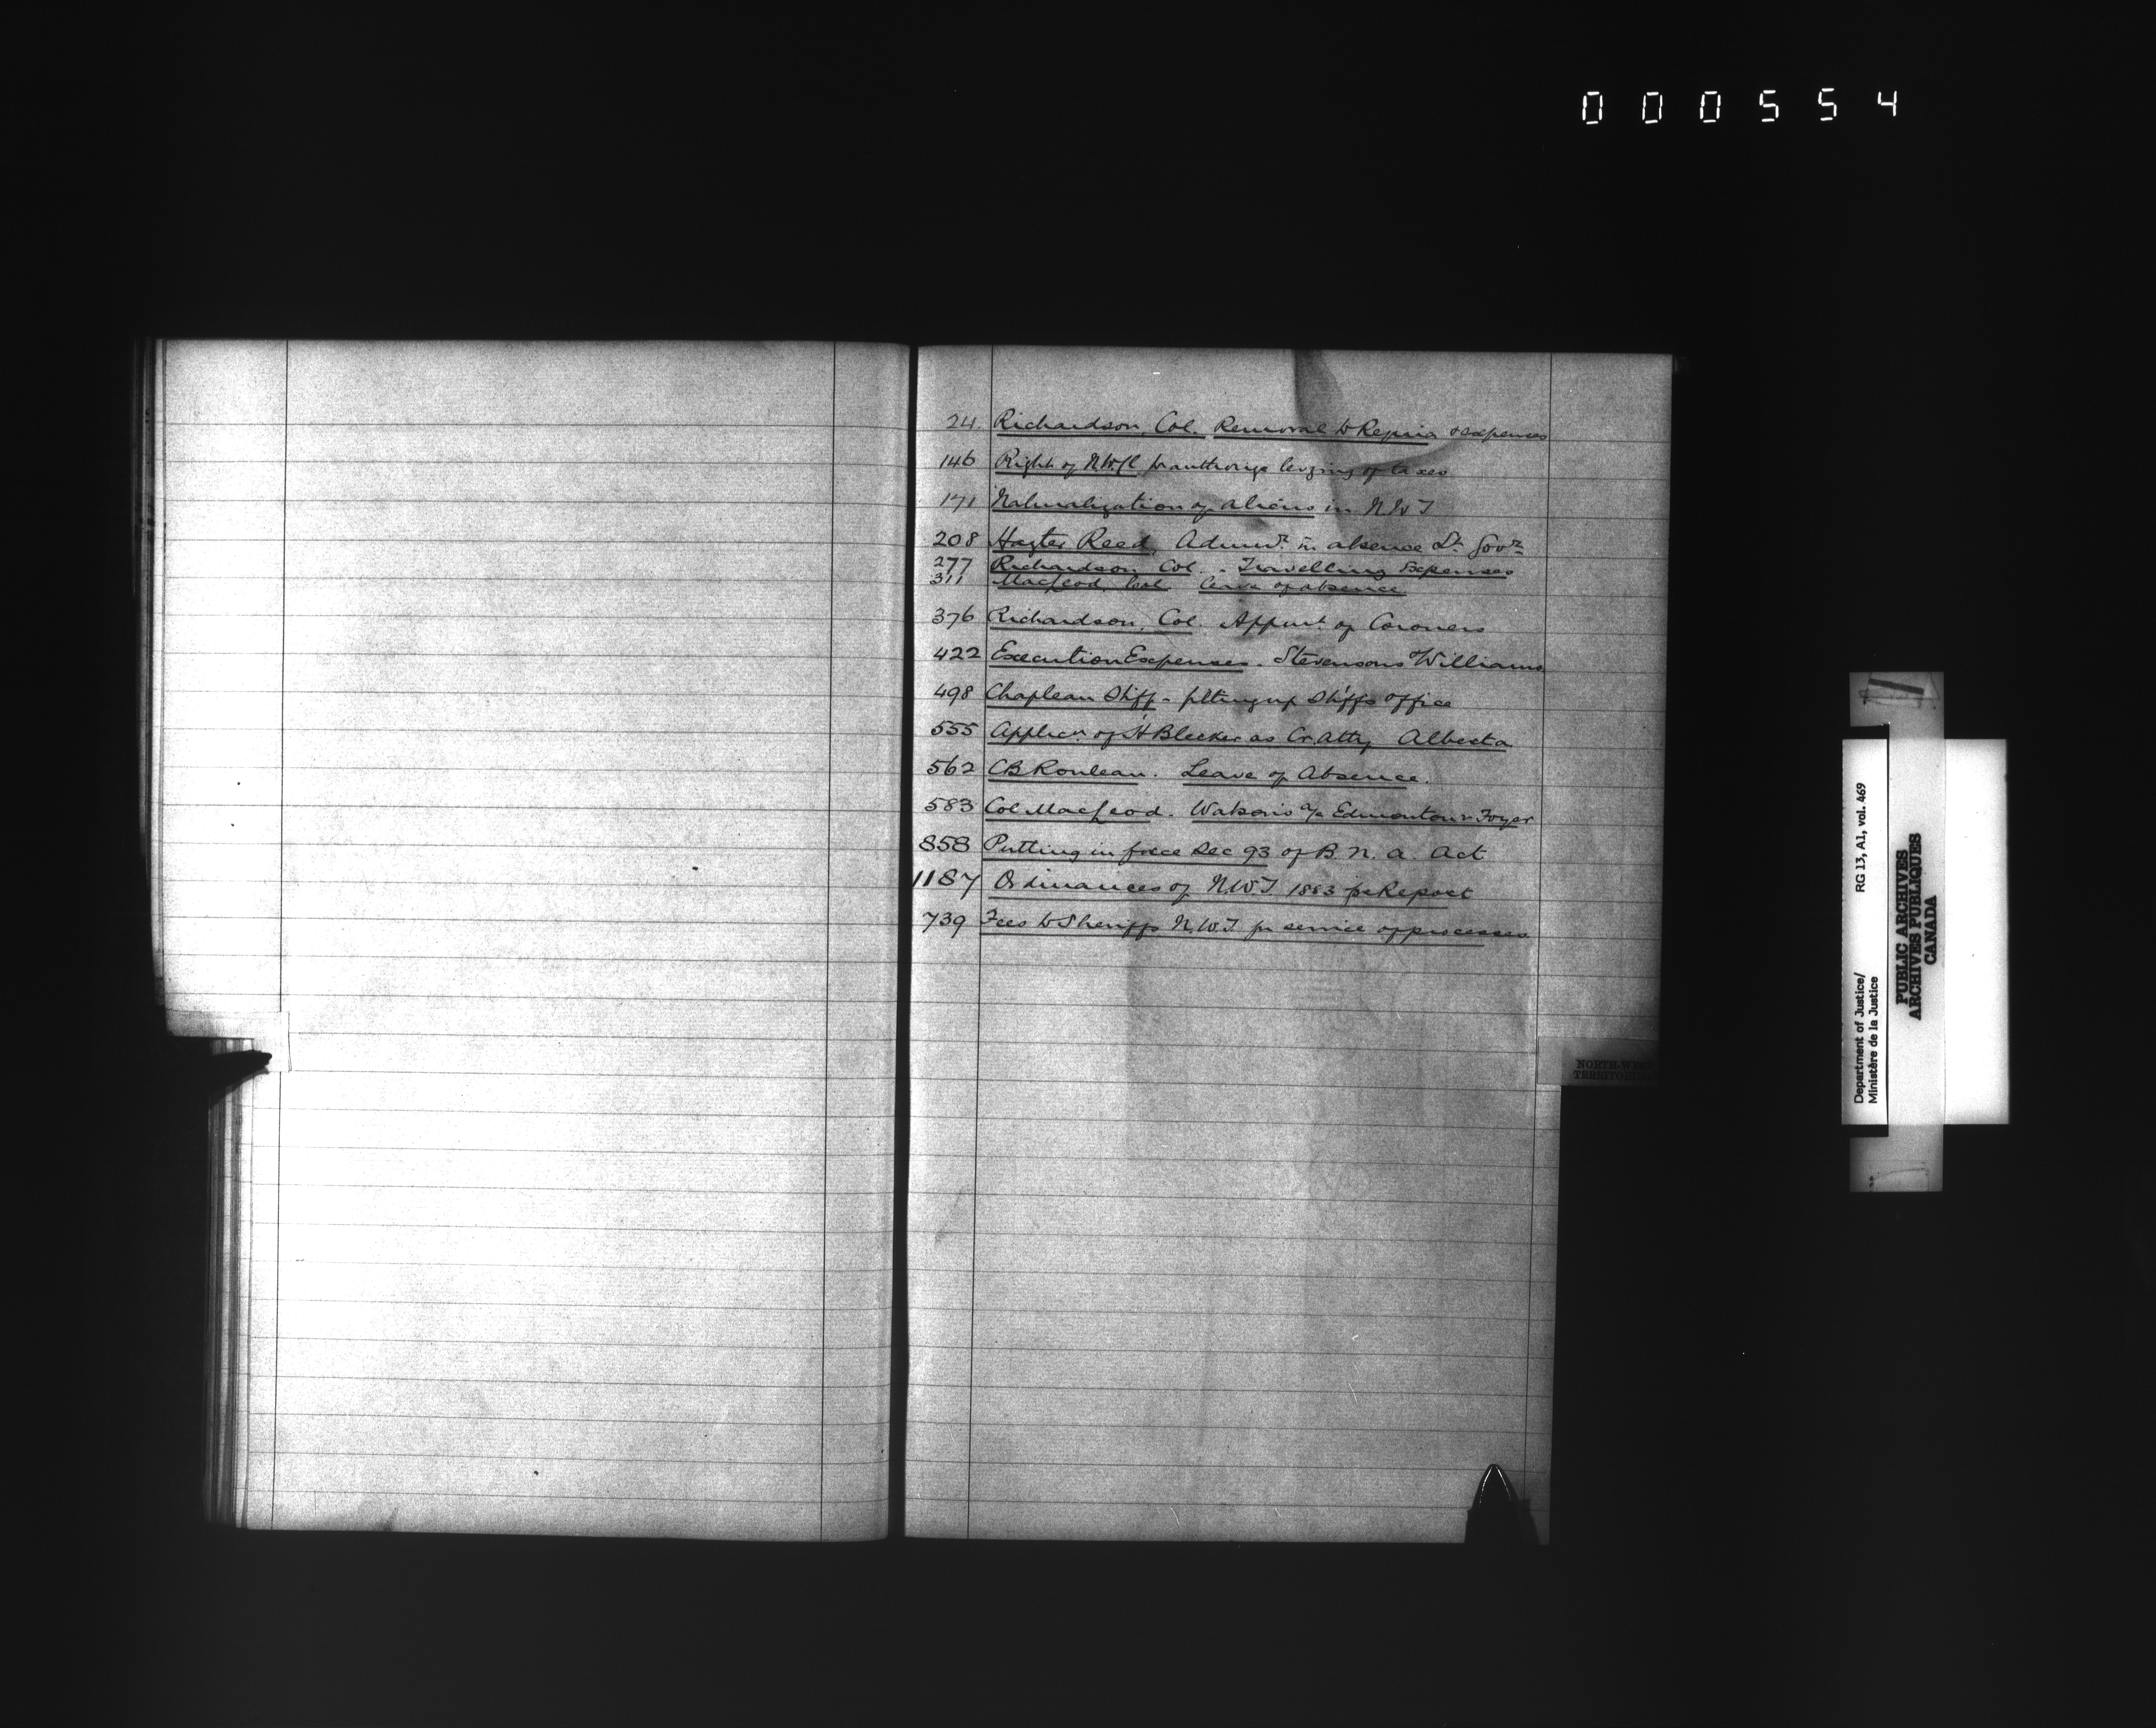 000554
24. Richardson, Col. Removal to Regina & expenses
146 Right of N.W.C to authorize levying of taxes
171 Naturalization of aliens in N W T
208 Hayter Reed, Admr. in absence Lt. Govr.
277 Richardson Col. - Travelling Expenses
311 MacLeod, Col. leave of absence
376 Richardson, Col. Appmt. of Coroners
422 Execution Expenses. Stevensons & Williams
498 Chapleau Shff - fitting up Shffs office
555 Applicn. of H Bleeker as Cr. Atty Alberta
562 CB Rouleau. Leave of Absence.
583 Col MacLeod. Watson's a/c Edmonton
858 Putting in force Sec 93 of B. N. A. Act
1187 Ordinances of N.W.T 1883 for Report
739 Fees to Sheriffs N.W.T for service of processes
NORTH-WEST
TERRITORIES
Department of Justice/
Ministère de la Justice
RG 13, A1, vol. 469
PUBLIC ARCHIVES
ARCHIVES PUBLIQUES
CANADA